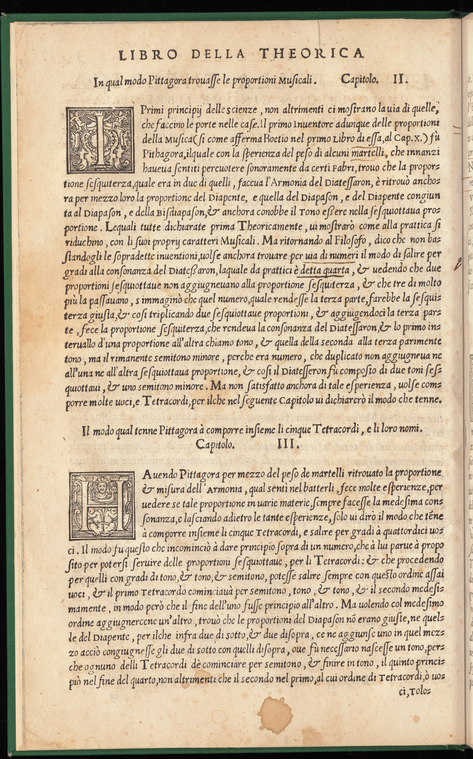 LIBRO DELLA THEORICA
In qual modo Pittagora trouasse le proportioni Musicali. Capitolo. II.
I Primi principij delle scienze, non altrimenti ci mostrano la uia di quelle,
che faccino le porte nelle case. Il primo Inuentore adunque delle proportioni
della Musica (si come afferma Boetio nel primo Libro di essa, al Cap. x.) fù
Pithagora, il quale con la sperienza del peso di alcuni martelli, che innanzi
haueua sentiti percuotere sonoramente da certi Fabri, trouo che la propor=
tione sesquiterza, quale era in due di quelli, faceua l'Armonia del Diatessaron, è ritrouò ancho=
ra per mezzo loro la proportione del Diapente, e quella del Diapason, e del Diapente congiun
ta al Diapason, e della Bisdiapasõn, & anchora conobbe il Tono eßere nella sesquiottaua pro=
portione. Lequali tutte dichiarate prima Theoricamente, ui mostrarò come alla prattica si
riduchino, con li suoi proprij caratteri Musicali. Ma ritornando al Filosofo, dico che non ba=
standogli le sopradette inuentioni, uolse anchora trouare per uia di numeri il modo di salire per
gradi alla consonanza del Diatessaron, laquale da prattici è detta quarta, & uedendo che due
proportioni sesquiottaue non aggiugneuano alla proportione sesquiterza, & che tre di molto
più la passauano, s'imaginò che quel numero, quale rendesse la terza parte, farebbe la sesqui=
terza giusta, & così triplicando due sesquiottaue proportioni, & aggiugendoci la terza par=
te, fece la proportione sesquiterza, che rendeua la consonanza del Diatessaron, & lo primo in=
teruallo d'una proportione all'altra chiamo tono, & quella della seconda alla terza parimente
tono, ma il rimanente semitono minore, perche era numero, che duplicato non aggiugneua ne
all'una ne all'altra sesquiottaua proportione, & così il Diatesseron fù composto di due toni ses=
quiottaui, & uno semitono minore. Ma non satisfatto anchora di tale esperienza, uolse com=
porre molte uoci, e Tetracordi, per ilche nel seguente Capitolo ui dichiarerò il modo che tenne.
Il modo qual tenne Pittagora à comporre insieme li cinque Tetracordi, e li loro nomi.
Capitolo. III.
HAuendo Pittagora per mezzo del peso de martelli ritrouato la proportione
& misura dell'Armonia, qual sentì nel batterli, fece molte esperienze, per
uedere se tale proportione in varie materie, sempre facesse la medesima con
sonanza, e lasciando adietro le tante esperienze, solo ui dirò il modo che tẽne
à comporre insieme li cinque Tetracordi, e salire per gradi à quattordici uo=
ci. Il modo fu questo che incominciò à dare principio sopra di un numero, che à lui parue à propo
sito per potersi seruire delle proportioni sesquiottaue, per li Tetracordi: & che procedendo
per quelli con gradi di tono, & tono, & semitono, potesse salire sempre con questo ordine assai
uoci, & il primo Tetracordo cominciaua per semitono, tono, & tono, & il secondo medesi=
mamente, in modo però che il fine dell'uno fusse principio all'altro. Ma uolendo col medesimo
ordine aggiugnercene un'altro, trouò che le proportioni del Diapasõn nõ erano giuste, ne quel=
le del Diapente, per ilche infra due di sotto, & due disopra, ce ne aggiunse uno in quel mez=
zo acciò congiugnesse gli due di sotto con quelli disopra, oue fu necessario nascesse un tono, per=
che ognuno delli Tetracordi de cominciare per semitono, & finire in tono, il quinto princi=
piò nel fine del quarto, non altrimenti che il secondo nel primo, al cui ordine di Tetracordi, ò uo=
ci, uolo=